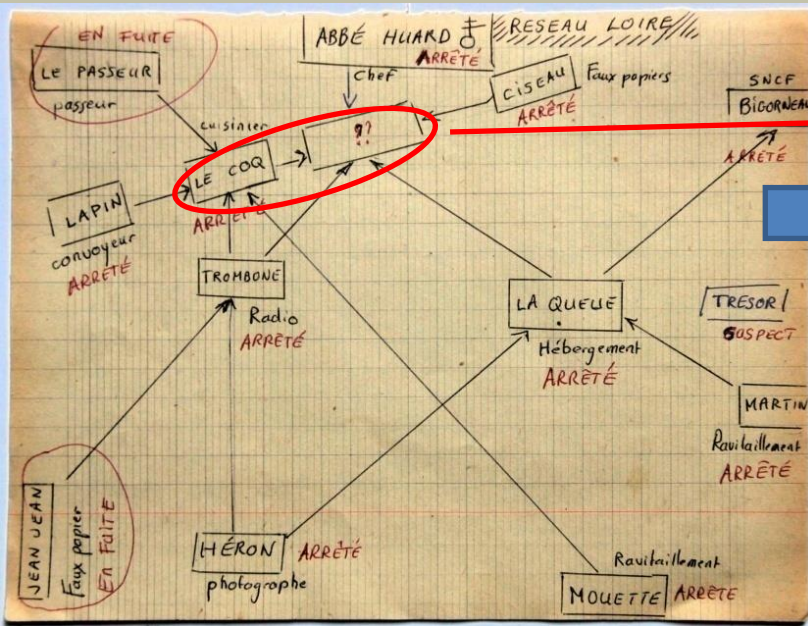 EN FUITE
LE PASSEUR
passeur
ABBÉ HUARD
ARRÊTÉ
Chef
RESEAU LOIRE
CISEAU
Faux papiers
ARRÊTÉ
SNCF
BIGORNEAU
ARRÊTÉ
cuisinier
??
LE COQ
ARRÊTÉ
LAPIN
convoyeur
ARRÊTÉ
TROMBONE
Radio
ARRÊTÉ
LA QUEUE
Hébergement
ARRÊTÉ
TRESOR
SUSPECT
MARTIN
Ravitaillement
ARRÊTÉ
JEAN JEAN
Faux papier
EN FUITE
HÉRON
ARRÊTÉ
photographe
Ravitaillement
MOUETTE
ARRÊTE